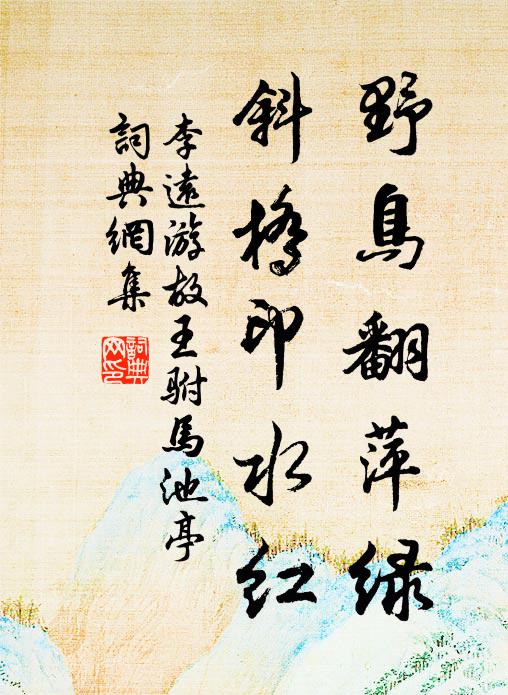 野鳥翻萍緑
斜橋印水紅
李遠游故王駙馬池亭
詞典網集
詞典
网印